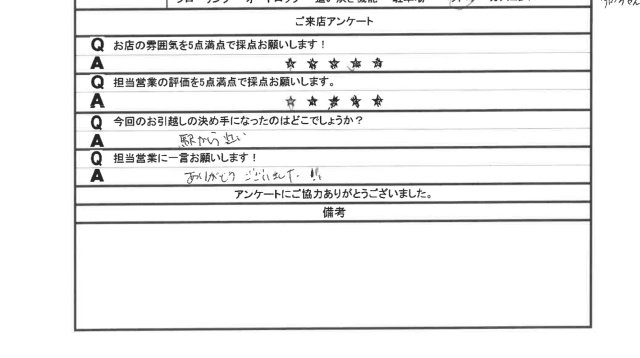 ご来店アンケート
Q お店の雰囲気を5点満点で採点お願いします！
A ☆ ☆ ☆ ☆ ☆
Q 担当営業の評価を5点満点で採点お願いします。
A ☆ ☆ ☆ ☆ ☆
Q 今回のお引越しの決め手になったのはどこでしょうか？
A 駅から近い
Q 担当営業に一言お願いします！
A ありがとうございました!!
アンケートにご協力ありがとうございました。
備考